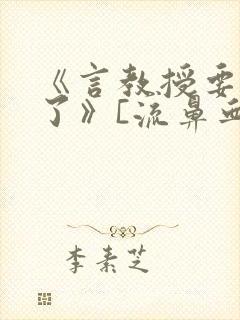 《言教授要
了》[流鼻血
李素芝